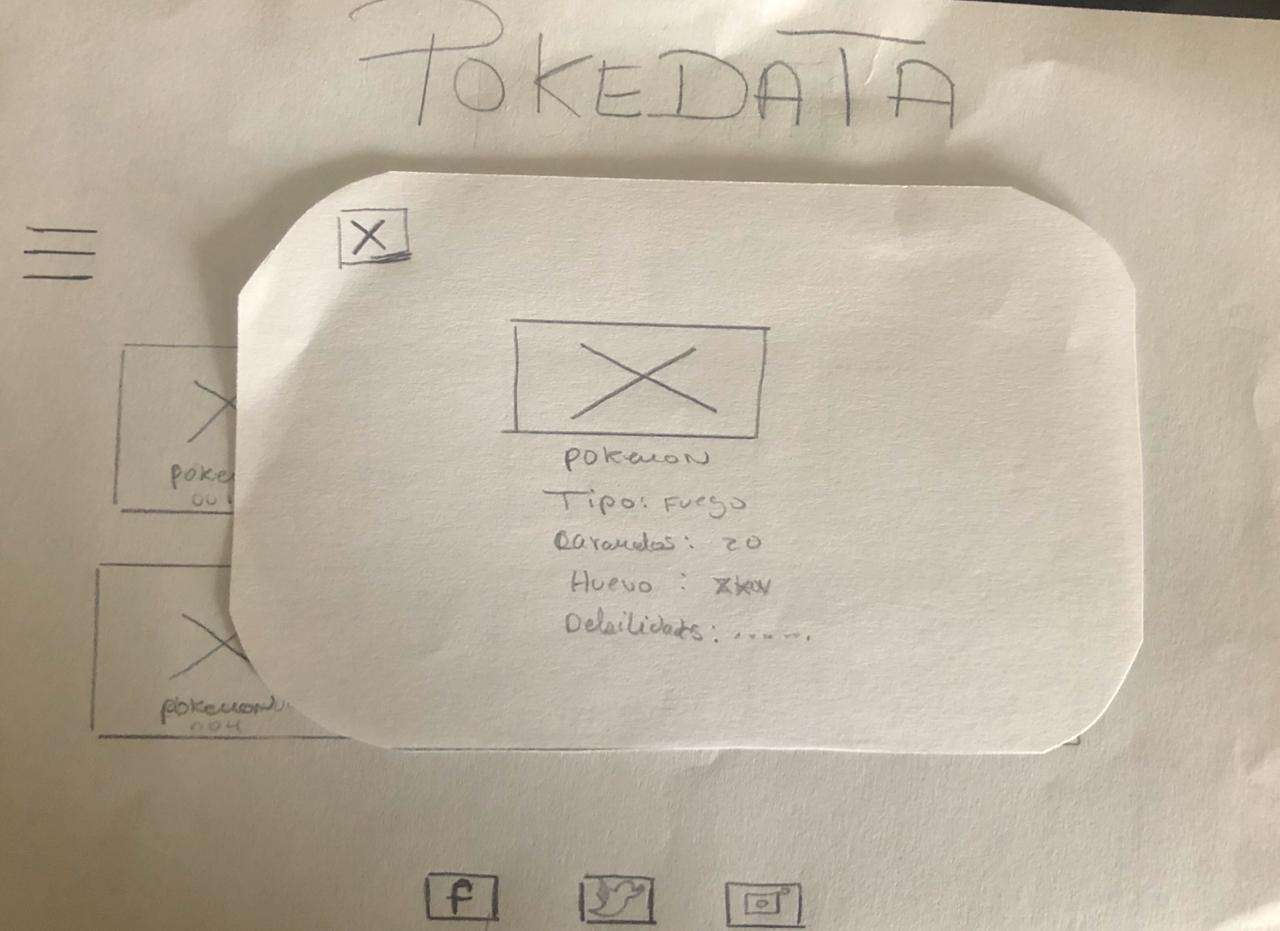 POKEDATA
X
pokemon
Tipo: Fuego
Caramelos: 20
Huevo : 2km
Debilidades: .......
poke
001
pokemon
004
f